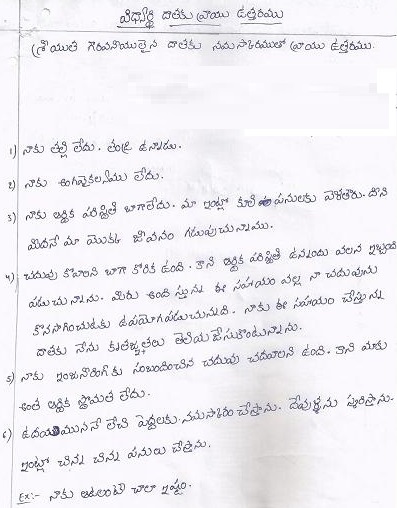 విద్యార్థి దాతకు వ్రాయు ఉత్తరము
శ్రీయుత గౌరవనీయులైన దాతకు నమస్కారములతో వ్రాయు ఉత్తరము.
1) నాకు తల్లి లేదు. తండ్రి ఉన్నాడు.
2) నాకు అంగవైకల్యము లేదు.
3) నాకు ఆర్థిక పరిస్థితి బాగాలేదు. మా ఇంట్లో కూలి పనులకు వెళతారు. దాని
మీదనే మా యొక్క జీవనం గడుపుచున్నాము.
4) చదువు కోవాలని బాగా కోరిక ఉంది. కాని ఆర్థిక పరిస్థితి ఉన్నందు వలన ఇబ్బంది
పడుచున్నాను. మీరు అందిస్తున్న ఈ సహాయం వల్ల నా చదువును
కొనసాగించుటకు ఉపయోగపడుచున్నది. నాకు ఈ సహాయం చేస్తున్న
దాతకు నేను కృతజ్ఞతలు తెలియజేసుకొంటున్నాను.
5) నాకు ఇంజనీరింగ్ కు సంబంధించిన చదువు చదవాలని ఉంది. కాని మాకు
అంత ఆర్థిక స్తోమత లేదు.
6) ఉదయముననే లేచి పెద్దలకు నమస్కారం చేస్తాను. దేవుళ్ళను స్మరిస్తాను.
ఇంట్లో చిన్న చిన్న పనులు చేస్తాను.
Ex:- నాకు ఆటలంటే చాలా ఇష్టం.